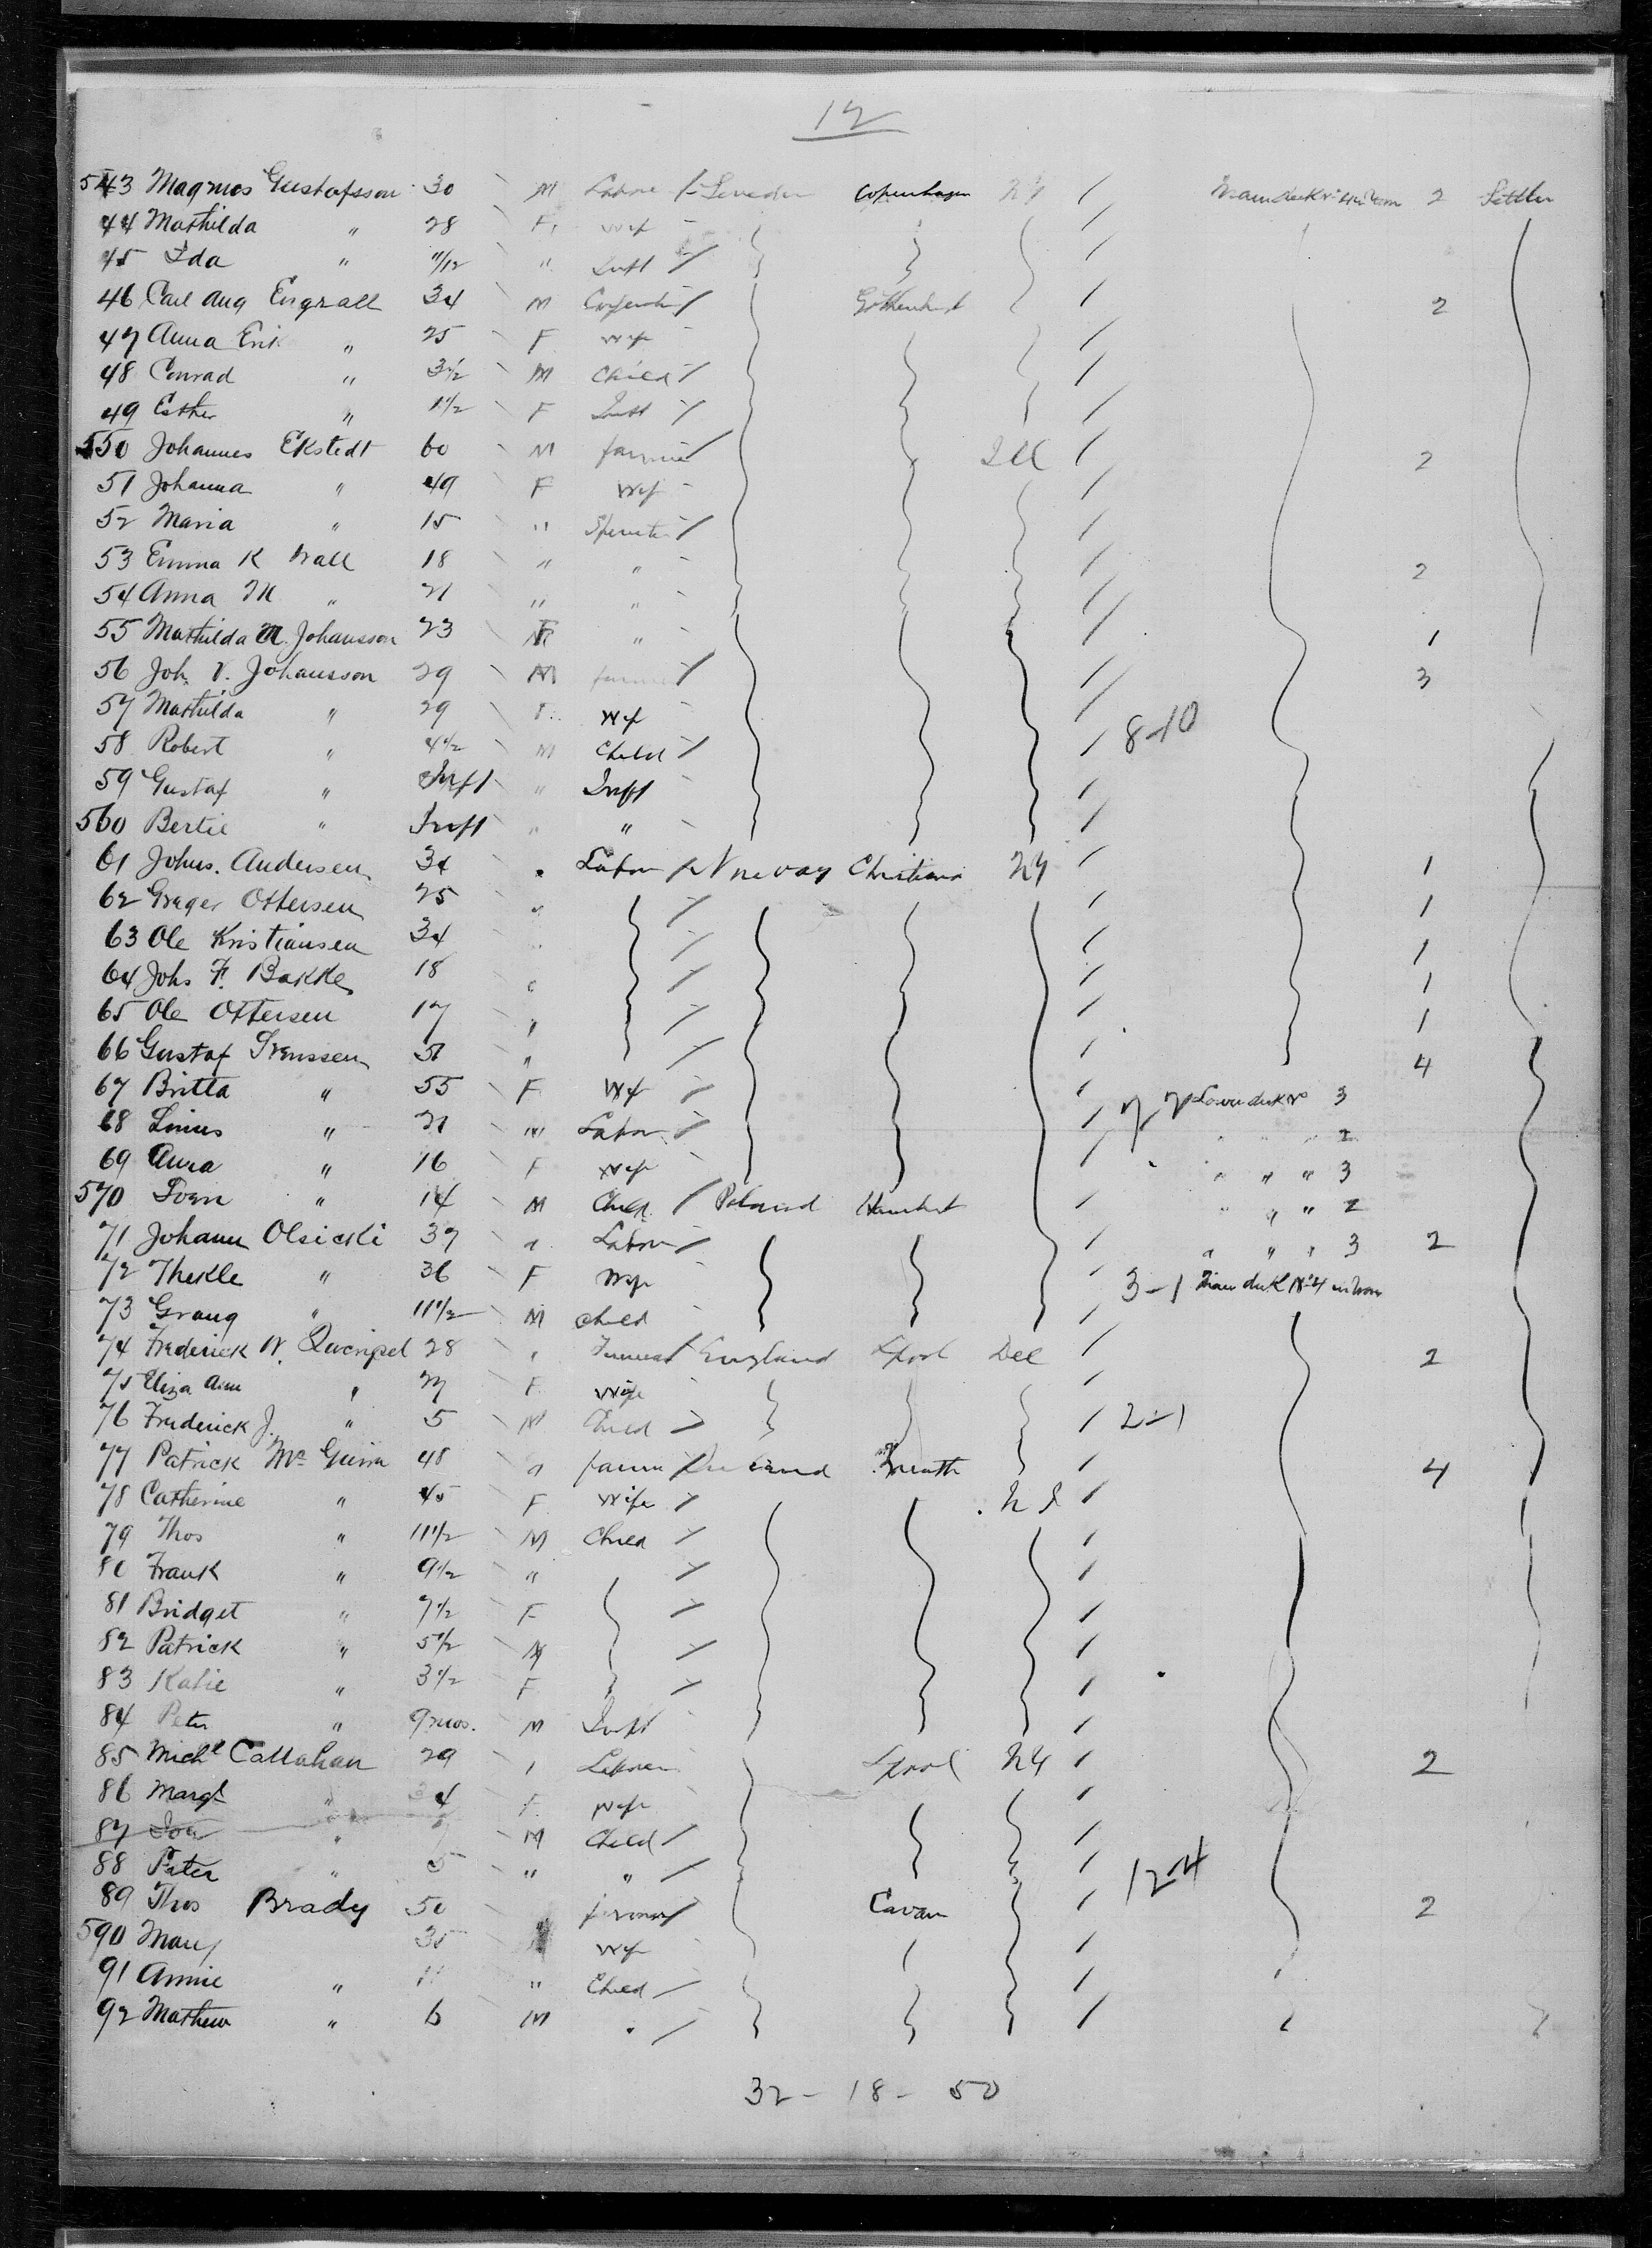 12
543 Magnus Gustafsson 30 M Labor Sweden Copenhagen NY 2 Settler
44 Mathilda " 28 F Wife
45 Ida " 11/12 " Inft
46 Carl Aug Engvall 34 M 2
47 Anna Erik " 25 F Wife
48 Conrad " 3 1/2 M Child
49 Esther " 1 1/2 F Inft
550 Johannes Ekstedt 60 M farmer Ill 2
51 Johanna " 49 F Wif
52 Maria " 15 "
53 Emma K 18 " " 2
54 Anna M " 21 " "
55 Mathilda M. Johansson 23 F " 1
56 Joh. V. Johansson 29 M farmer 3
57 Mathilda " 29 F Wif
58 Robert " 4 1/2 M Child 8-10
59 Gustaf " Inft " Inft
560 Bertie " Inft " "
61 Johns. Andersen 34 " Labor Norway Christiania NY 1
62 Ottersen 25 " 1
63 Ole Kristiansen 34 " 1
64 Johs F. Bakke 18 " 1
65 Ole Ottersen 17 " 1
66 Gustaf 51 " 4
67 Britta " 55 F Wif 3
68 Linus " 21 " Labor " " "
69 Anna " 16 F Wif " " " 3
570 Sven " 14 M Child Poland Hamburg " " " 2
71 Johann Olsicki 37 " Labor " " " 3 2
72 Thekle " 36 F Wife 3-1
73 " 11 1/2 M Child
74 Frederick W. 28 " England Lpool Del 2
75 Eliza Ann " 27 F Wife
76 Frederick J. " 5 M Child 2-1
77 Patrick Mc 48 " farmer Ireland 4
78 Catherine " 45 F Wife
79 Thos " 11 1/2 M Child
80 Frank " 9 1/2 "
81 Bridget " 7 1/2 F
82 Patrick " 5 1/2 M
83 Katie " 3 1/2 F
84 Peter " 9 mos. M Inft
85 Michl Callahan 29 " Laborer Lpool NY 2
86 Margt " F Wife
87 " M Child
88 Peter " 5 " "
89 Thos Brady 50 farmer Cavan 12-4 2
590 Mary 35 Wif
91 Annie " 11 " Child
92 Mathew " 6 M "
32 - 18 - 50